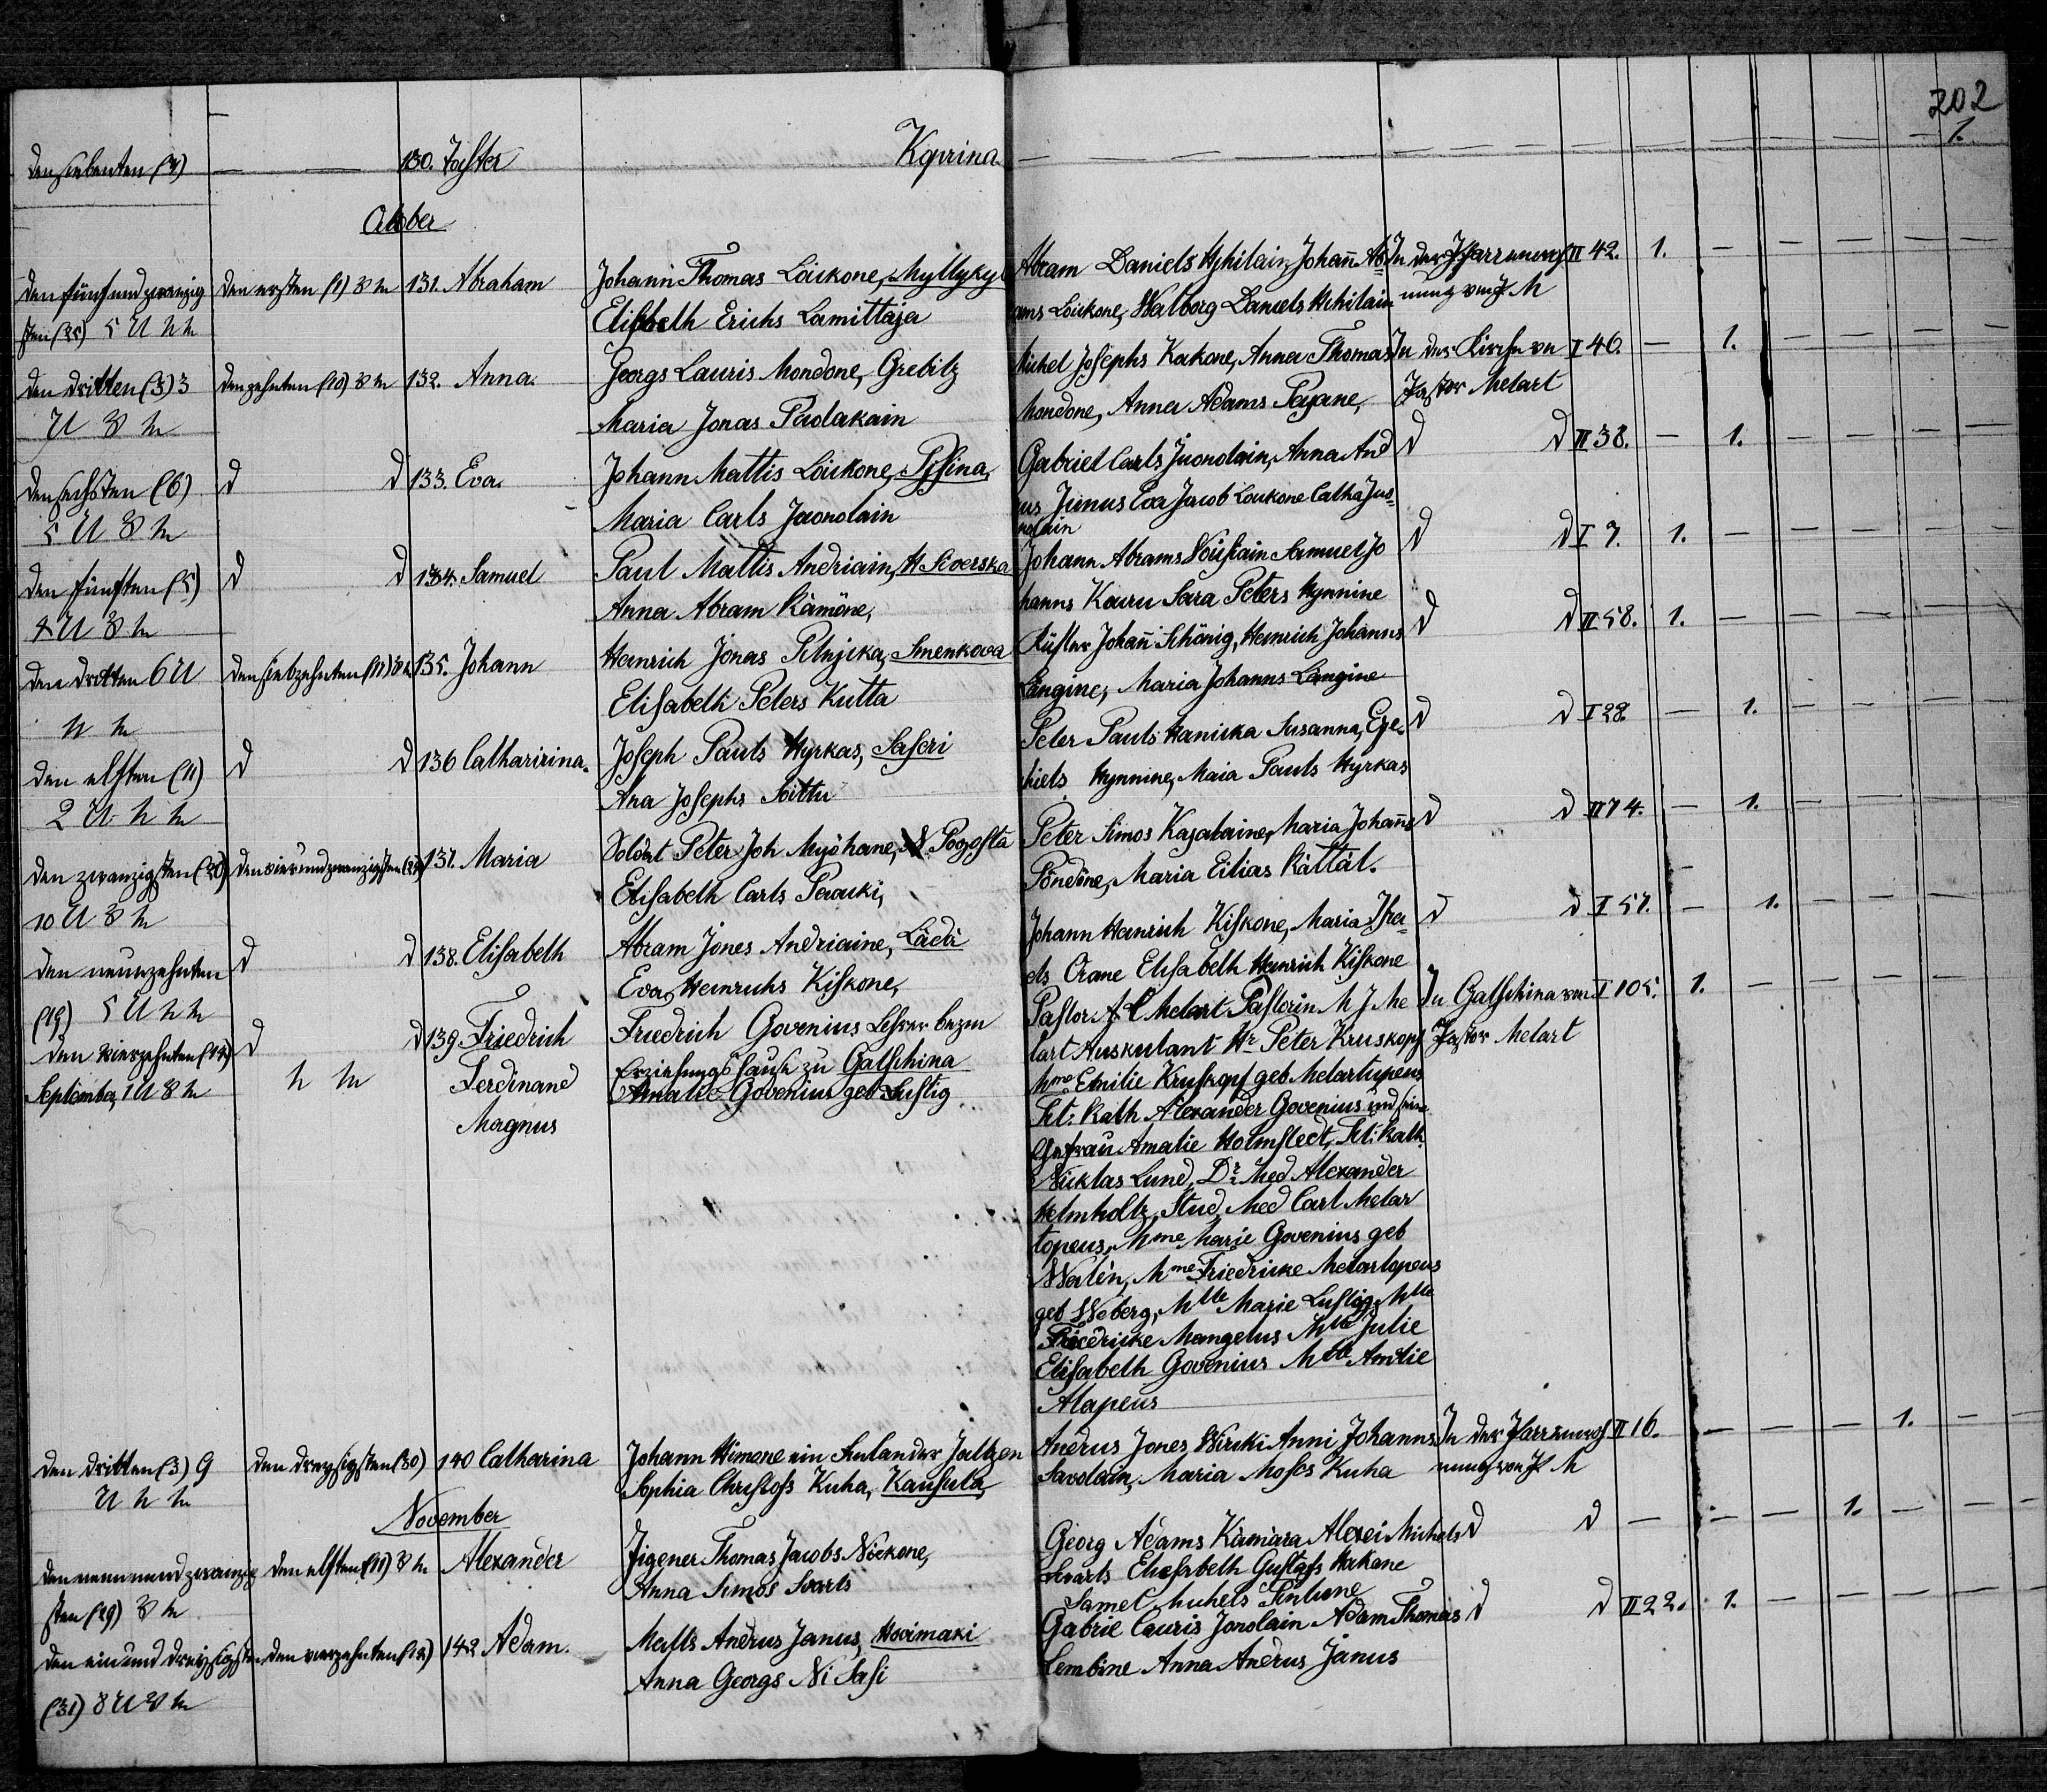 202
den siebenten (7) — — 130. Tochter Kqvrina — — — — — 1.
October
den fünfundzwanzig den ersten (1) V M 131. Abraham Johann Thomas Loukone, Myllykyl Abram Daniels Hyhilain, Johan̄ Ab In der II 42. 1. — — — — —
sten (25) 5 U N M Elisabeth Erichs Lamittaja ams Loukone, Walborg Daniels Hihilain nung von P M
den dritten (3) 3 den zehnten (10) V M 132. Anna. Georgs Lauris Mondone, Grebitz Michel Josephs Kakone, Anna Thomas In der Kirche von I 46. — 1. — — — —
U V M Maria Jonas Padakain Mondone, Anna Adams Payane, Pastor Melart
den sechsten (6) d d 133. Eva. Johann Mattis Loukone, Pissina, Gabriel Carls Juonolain, Anna And d d II 38. — 1. — — — —
5 U V M Maria Carls Juonolain us Junus Eva Jacob Loukone Catha Juo
nolain
den fünften (5) d d 134. Samuel Paul Mattis Andriain, H Siverska Johann Abrams Nouskain Samuel Jo d d I 7. 1. — — — — —
4 U V M Anna Abram Rämöne, hanns Kauru Sara Peters Hynnine
den dritten 6 U den siebzehnten (17) V M 135. Johann Heinrich Jonas Pilnjika, Smenkova Küster Johan̄ Schönig, Heinrich Johanns d d II 58. 1. — — — — —
N M Elisabeth Peters Kutta Längine, Maria Johanns Langine
den elften (11) d d 136 Catharirina. Joseph Pauls Hyrkas, Saseri Peter Pauls Hanicka Susanna, Eze d d I 28. — 1. — — — —
2 U N M Ana Josephs Soittu hiels Hynnine, Maia Pauls Hyrkas
den zwanzigsten (20) den vierundzwanzigsten (24) 137. Maria Soldat Peter Joh Myöhane, N Pogosta Peter Simos Kajalaine, Maria Johan̄s d d II 74. — 1. — — — —
10 U V M Elisabeth Carls Perauki, Pöndöne, Maria Eilias Rättäl.
den neunzehnten d d 138. Elisabeth Abram Jones Andriaine, Lädi Johann Heinrich Kiskone, Maria Isra d d I 57. — 1. — — — —
(19) 5 U N M Eva, Heinrichs Kiskone, els Orane Elisabeth Heinrich Kiskone
den vierzehnten (14) d d 139. Friedrich Friedrich Govenius Lehrer beym Pastor A C Melart Pastorin M J Me In Gatschina von I 105. 1. — — — — —
September, 1 U V M N M Ferdinand Erziehungshause zu Gatschina lart Auskulant Hr Peter Kruskopf Pastor Melart
Magnus Amalie Govenius geb Lustig Mme Emilie Kruskopf geb Melartupeus
Tit: Rath Alexander Govenius und seine
Gefrau Amalie Holmstedt, Tit: Rath
Nicklas Lund, Dr: Med Alexander
Helmholtz, Stud Med Carl Melar
topeus, Mme Marie Govenius geb
Walén, Mme Friedricke Melartopeus
geb Weberg, Mlle Marie Lustig Mlle
Friedricke Mangelus Mlle Julie
Elisabeth Govenius Mlle Amélie
Alapeus
den dritten (3) 9 den dreyzigsten (30) 140 Catharina Johann Himone ein Finlander Andrus Jones Wiruki Anni Johanns In der II 16. — — — — 1. —
U N M Sophia Christofs Kuha, Kansula, Savolain, Maria Moses Kuha nung von P M
November
den neunundzwanzig den elften (11) V M Alexander Zigener Thomas Jacobs Nickone, Georg Adams Kämära Alexei Michels d d — — — 1. — —
sten (29) V M Anna Simos Svarts Svarts Elisabeth Gustafs Hakane
Samel Michels Sinlune
den einund dreyzigsten den vierzehnten (14) 142 Adam. Matts Andrus Janus, Hovimaki Gabrie Lauris Jonolain Adam Thomas d d II 22. 1. — — — — —
(31) 8 U V M Anna Georgs Ni Sasi Lembine Anna Andrus Janus